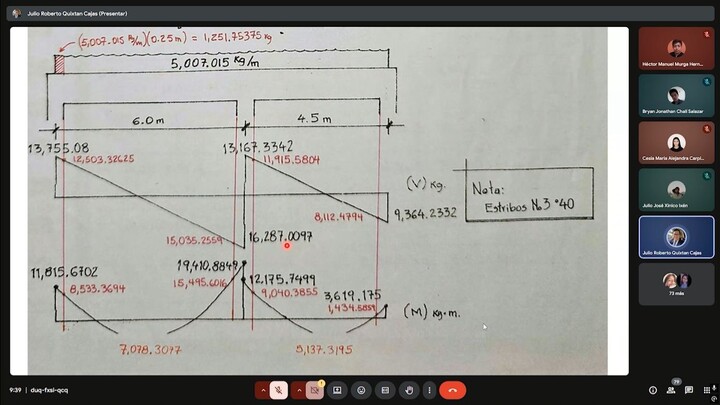 Julio Roberto Quixtan Cajas (Presentar)
(5,007.015 Kg/m)(0.25m) = 1,251.75375 kg
5,007.015 Kg/m
6.0 m
4.5 m
13,755.08
13,167.3342
12,503.32625
11,915.5804
(V) Kg.
Nota:
Estribos No.3 °40
8,112.4794
9,364.2332
15,035.2559
16,287.0097
11,815.6702
19,410.8849
12,175.7499
8,533.3694
15,495.6016
9,040.3855
3,619.175
1,434.5859
(M) Kg-m.
7,078.3077
5,137.3195
Héctor Manuel Murga Hern...
Bryan Jonathan Chali Salazar
Casia María Alejandra Carpi...
Julio José Xinico Ixén
Julio Roberto Quixtan Cajas
73 más
9:39 | duq-fxsi-qcq